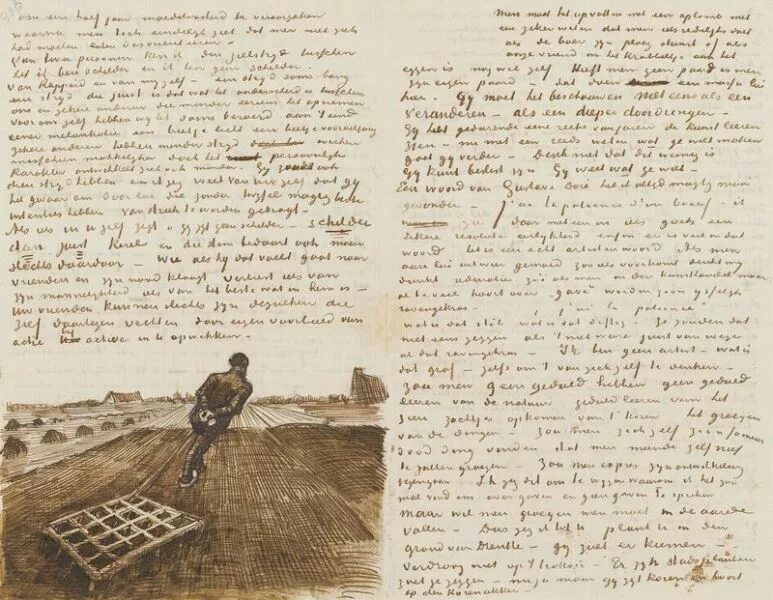 om een half jaar moedeloosheid te veroorzaken
waarna men toch eindelijk ziet dat men niet zich
had moeten laten desorienteeren. —
Van twee personen ken ik den zielstrijd tusschen
het ik ben schilder en ik ben geen schilder.
Van Rappard en van mijzelf — een strijd soms bang
een strijd die juist is dat wat het onderscheid is tusschen
ons en zekere anderen die minder serieus het opnemen
voor ons zelf hebben wij 't soms beroerd aan 't eind
eener melancholie een beetje licht een beetje vooruitgang
zekere anderen hebben minder strijd werken
misschien makkelijker doch het persoonlijke
karakter ontwikkelt zich ook minder. Gij zoudt ook
dien strijd hebben en ik zeg weet van uw zelf dat gij
het gevaar om door lui die zonder twijfel beste
intenties hebben van streek te worden gebragt. —
Als iets in U zelf zegt gij zijt geen schilder — schilder
dan juist kerel en die stem bedaart ook maar
slechts daardoor — wie als hij dat voelt gaat naar
vrienden en zijn nood klaagt verliest iets van
zijn mannelijkheid iets van het beste wat in hem is —
Uw vrienden kunnen slechts zijn dezulken die
zelf daartegen vechten door eigen voorbeeld van
actie het active in U opwekken. —
Men moet het opvatten met een aplomb met
een zeker weten dat men iets redelijks doet
als de boer zijn ploeg stuurt of als
onze vriend in het krabbeltje die aan het
eggen is nog wel zelf. Heeft men geen paard is men
zijn eigen paard — dat doen een massa lui
hier. Gij moet het beschouwen niet eens als een
veranderen — als een dieper doordringen —
Gij hebt gedurende eene reeks van jaren de kunst leeren
zien — nu met een reeds weten wat ge wilt maken
gaat gij verder — Denk niet dat dit weinig is
Gij kunt beslist zijn Gij weet wat ge wilt —
Een woord van Gustave Doré heb ik altijd magtig mooi
gevonden — j'ai la patience d'un boeuf — ik
zie daar meteen in iets goeds een
zekere resolute eerlijkheid enfin er is veel in dat
woord het is een echt artisten woord. Als men
aan lui
denkt redenaties zoo als men in den kunsthandel maar
al te veel hoort over "gave" worden zoo'n ijselijk
ravengekras — j'ai la patience —
wat is dat stil wat is dat deftig — Ze zouden dat
niet eens zeggen als 't niet ware juist van wege
al dat ravengekras — Ik ben geen artist — wat is
dat grof — zelfs om 't van zich zelf te denken —
zou men geen geduld hebben geen geduld
leeren van de natuur geduld leeren van het
zien zachtjes opkomen van 't koren het groeijen
van de dingen — zou men zich zelf zoo'n fameus
dood ding vinden dat men meende zelf niet
te zullen groeijen — zou men expres zijn ontwikkeling
tegengaan — Ik zeg dit om te wijzen waarom ik het zoo
mal vind om over gaven en geen gaven te spreken
maar wil men groeijen men moet in de aarde
vallen — Dus zeg ik tot U plant U in den
grond van Drenthe — gij zult er kiemen —
verdroog niet op 't trottoir — Er zijn stads planten
zult ge zeggen — nu ja maar gij zijt koren en hoort
op den korenakker. —